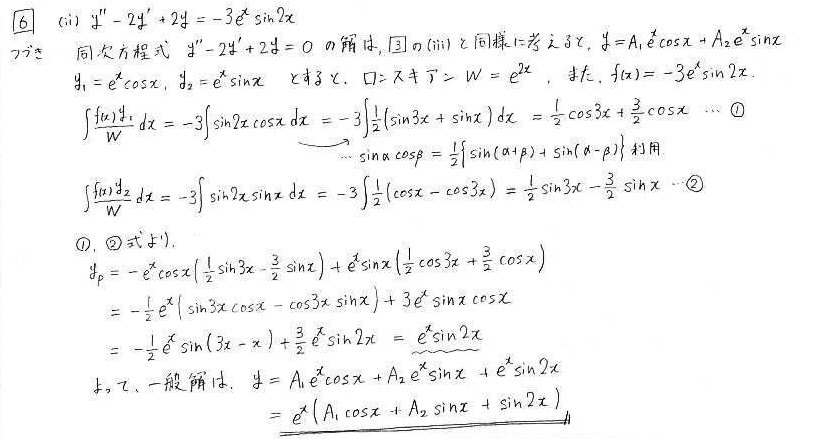 6 (ii) y'' - 2y' + 2y = -3e^x sin2x
つづき 同次方程式 y'' - 2y' + 2y = 0 の解は, 3 の (iii) と同様に考えると, y = A₁e^x cosx + A₂e^x sinx
y₁ = e^x cosx, y₂ = e^x sinx とすると, ロンスキアン W = e^{2x}, また, f(x) = -3e^x sin2x.
∫ f(x)y₁/W dx = -3∫ sin2x cosx dx = -3∫ 1/2 (sin3x + sinx) dx = 1/2 cos3x + 3/2 cosx … ①
… sinα cosβ = 1/2 { sin(α+β) + sin(α-β) } 利用
∫ f(x)y₂/W dx = -3∫ sin2x sinx dx = -3∫ 1/2 (cosx - cos3x) = 1/2 sin3x - 3/2 sinx … ②
①, ②式より,
y_p = -e^x cosx ( 1/2 sin3x - 3/2 sinx ) + e^x sinx ( 1/2 cos3x + 3/2 cosx )
= -1/2 e^x ( sin3x cosx - cos3x sinx ) + 3e^x sinx cosx
= -1/2 e^x sin(3x - x) + 3/2 e^x sin2x = e^x sin2x
よって, 一般解は, y = A₁e^x cosx + A₂e^x sinx + e^x sin2x
= e^x ( A₁ cosx + A₂ sinx + sin2x )